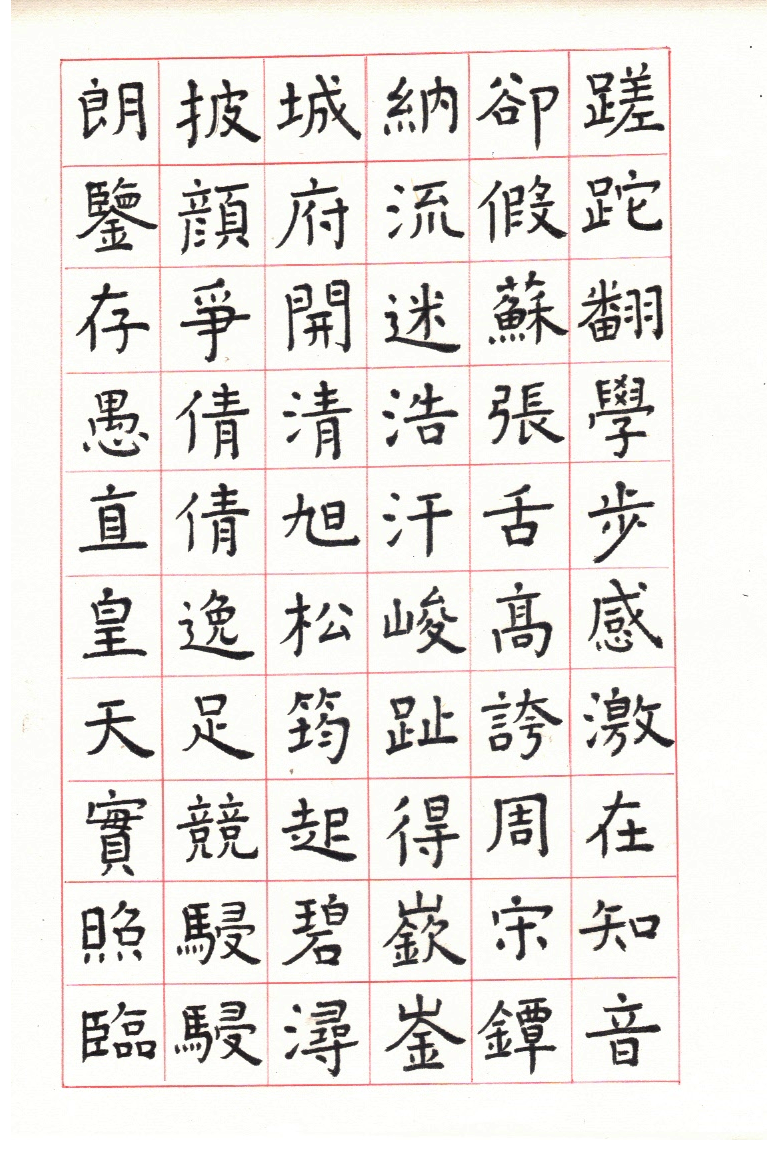 蹉跎翻學步感激在知音
卻假蘇張舌高誇周宋鐔
納流迷浩汗峻趾得嶔崟
城府開清旭松筠起碧潯
披顏爭倩倩逸足競駸駸
朗鑒存愚直皇天實照臨